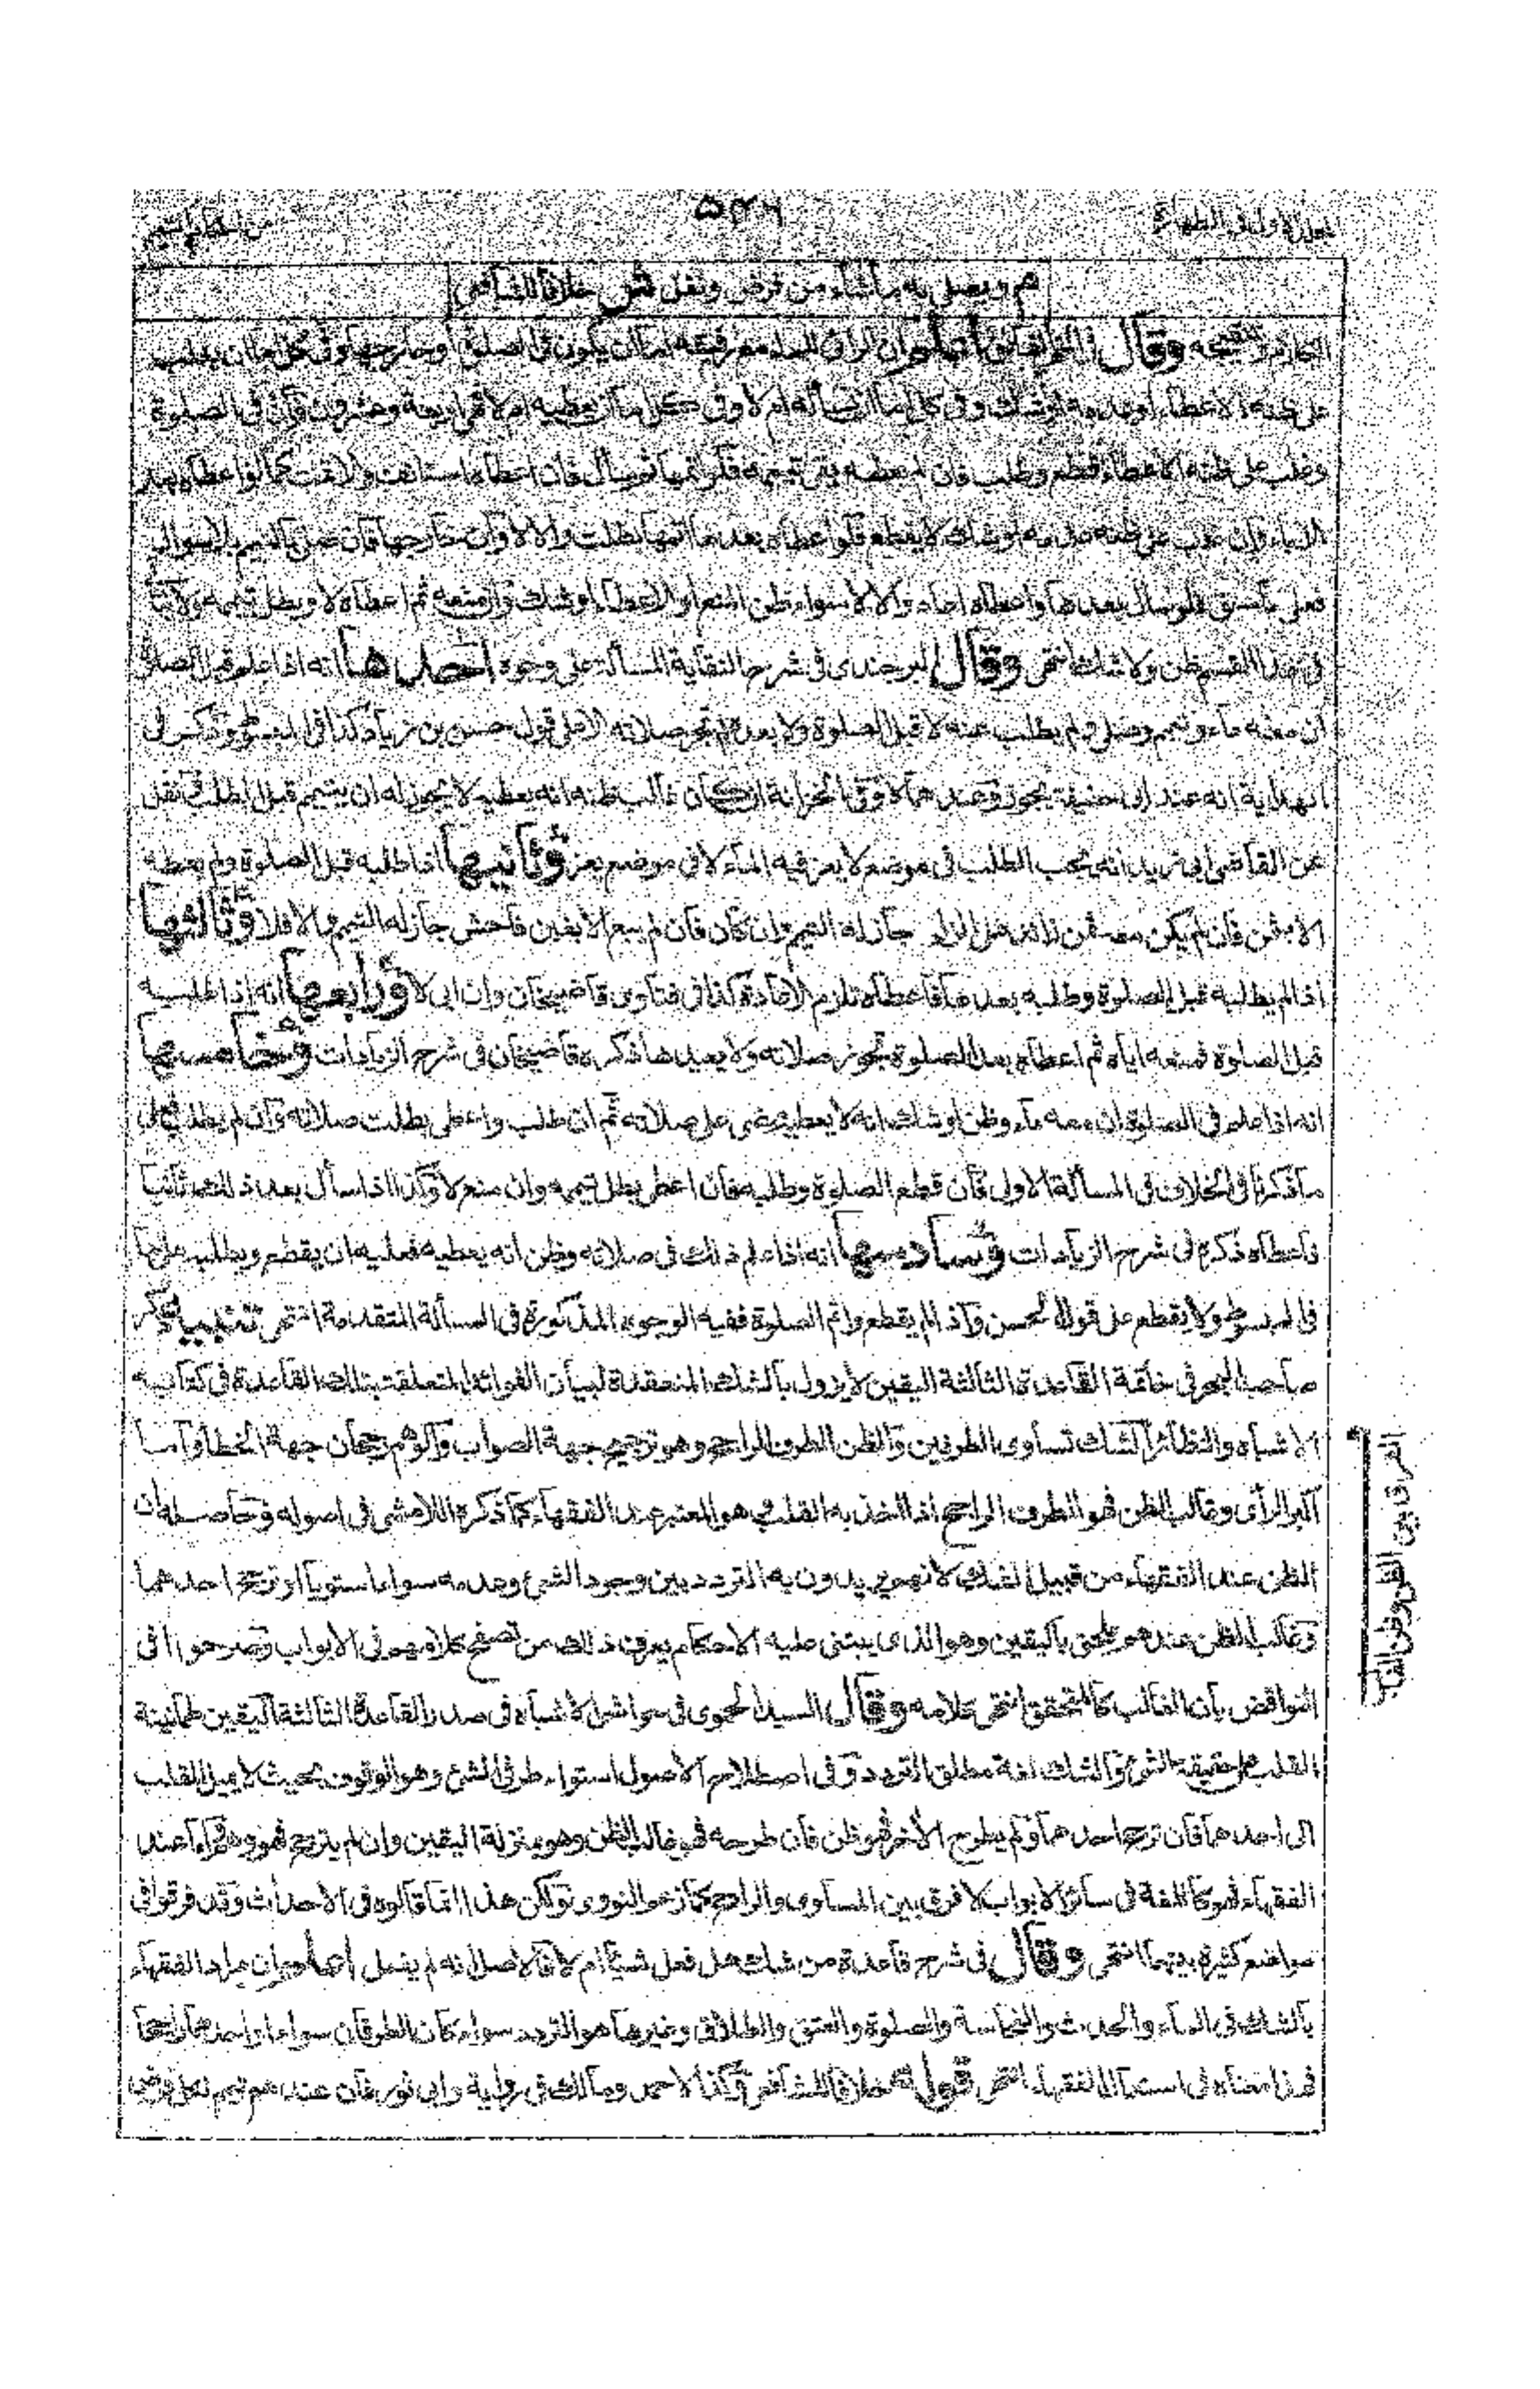 المجلد الأول في الطهارة
۵۴۶
من أحكام التيمم
م ويصلى به ما شاء من فرض ونفل ش خلافا للشافعي
وقال اعلم ان الرائي للماء مع رفيقه اما ان يكون في الصلوة او خارجها وفي كل اما ان يغلب
على ظنه الاعطاء او عدمه او يشك وفي كل اما ان سأله ام لا وفي كل اما ان يعطيه ام لا فهي اربعة وعشرون فان في الصلوة
وغلب على ظنه الاعطاء قطع وطلب فان لم يعطه بقي تيممه فلو اتمها ثم سأل فان اعطاه استانف والا تمت كما لو اعطاه بعد
الاباء وان غلب على ظنه عدمه او شك لا يقطع فلو اعطاه بعد ما اتمها بطلت والا لا وان خارجها فان صلى بالتيمم بلا سوال
فعلى ما سبق فلو سأل بعدها واعطاه اعاد والا لا سواء ظن المنع او الاعطاء او شك وان منعه ثم اعطاه لا ويبطل تيممه ولا يتأتى
في هذا القسم ظن ولا شك انتهى وقال البرجندى في شرح النقاية المسألة على وجوه احدها انه اذا علم قبل الصلاة
ان معه ماء وتيمم وصلى ولم يطلب عنه لا قبل الصلوة ولا بعدها لم تجز صلاته الا على قول حسن بن زياد كذا في المبسوط وذكر في
الهداية انه عند ابى حنيفة يجوز وعندهما لا وفي الخزانة ان كان غالب ظنه انه يعطيه لا يجوز له ان يتيمم قبل الطلب ونقل
عن القاضي ابى زيد انه يجب الطلب في موضع لا يعز فيه الماء لا في موضع يعز وثانيها اذا طلبه قبل الصلوة ولم يعطه
الا بثمن فان لم يكن معه ثمن زائد على الزاد جاز له التيمم وان كان فان لم يبع الا بغبن فاحش جاز له التيمم والا فلا وثالثها
اذا لم يطلبه قبل الصلوة وطلبه بعدها فاعطاه تلزم الاعادة كذا في فتاوى قاضيخان وان ابى لا ورابعها انه اذا طلبه
قبل الصلوة فمنعه اياه ثم اعطاه بعد الصلوة تجوز صلاته ولا يعيدها ذكره قاضيخان في شرح الزيادات وخامسها
انه اذا علم في الصلوة ان معه ماء وظن او شك انه لا يعطيه يمضى على صلاته ثم ان طلب واعطى بطلت صلاته وان لم يطلب فعلى
ما ذكرنا في الخلاف في المسألة الاولى فان قطع الصلوة وطلبه فان اعطى بطل تيممه وان منع لا وكذا اذا سأل بعد ذلك ثانيا
فاعطاه ذكره في شرح الزيادات وسادسها انه اذا علم ذلك في صلاته وظن انه يعطيه فعليه ان يقطع ويطلبه على ما
في المبسوط ولا يقطع على قول الحسن واذا لم يقطع واتم الصلوة ففيه الوجوه المذكورة في المسألة المتقدمة انتهى تنبيه ذكر
صاحب البحر في خاتمة القاعدة الثالثة اليقين لا يزول بالشك المنعقدة لبيان الفوائد المتعلقة بتلك القاعدة في كتابه
الاشباه والنظائر الشك تساوى الطرفين والظن الطرف الراجح وهو ترجيح جهة الصواب والوهم رجحان جهة الخطأ واما
اكبر الرأى وغالب الظن فهو الطرف الراجح اذا اخذ به القلب وهو المعتبر عند الفقهاء كما ذكره اللامشى في اصوله وحاصله ان
الظن عند الفقهاء من قبيل الشك لانهم يريدون به التردد بين وجود الشئ وعدمه سواء استويا او ترجح احدهما
وغالب الظن عندهم ملحق باليقين وهو الذى يبتنى عليه الاحكام يعرف ذلك من تصفح كلامهم في الابواب وصرحوا في
النواقض بأن الغالب كالمتحقق انتهى كلامه وقال السيد الحموى في حواشى الاشباه في صدر القاعدة الثالثة اليقين طمأنينة
القلب على حقيقة الشئ والشك لغة مطلق التردد وفي اصطلاح الاصول استواء طرفى الشئ وهو الوقوف بحيث لا يميل القلب
الى احدهما فان ترجح احدهما ولم يطرح الآخر فهو ظن فان طرحه فهو غالب الظن وهو بمنزلة اليقين وان لم يترجح فهو وهم واما عند
الفقهاء فهو كاللغة في سائر الابواب لا فرق بين المساوى والراجح كما زعم النووى ولكن هذا انما قالوه في الاحداث وقد فرقوا في
مواضع كثيرة بينهما انتهى وقال في شرح قاعدة من شك هل فعل شيئا ام لا فالاصل انه لم يفعل اعلم ان مراد الفقهاء
بالشك في الماء والحدث والنجاسة والصلوة والعتق والطلاق وغيرها هو التردد سواء كان الطرفان سواء او احدهما راجحا
فهذا معناه في استعمال الفقهاء انتهى قوله خلافا للشافعى وكذا لاحمد ومالك في رواية وابى ثور فان عندهم تيمم لكل فرض
الفرق بين الظن وظن الغالب